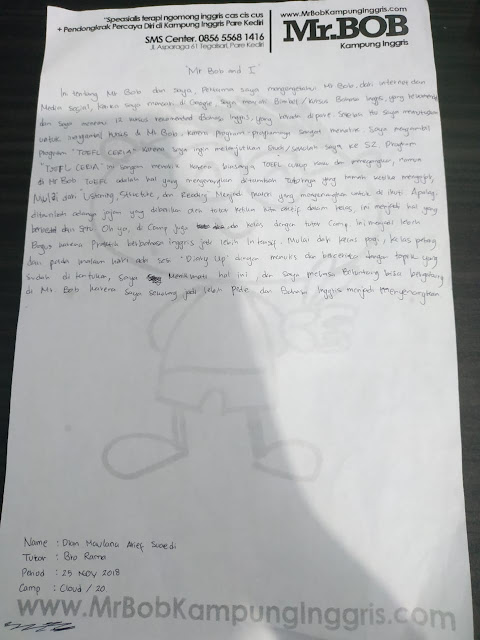 www.MrBobKampungInggris.com
"Speasialis terapi ngomong Inggris cas cis cus
+ Pendongkrak Percaya Diri di Kampung Inggris Pare Kediri
SMS Center. 0856 5568 1416
Jl. Asparaga 61 Tegalsari, Pare Kediri
Mr.BOB
Kampung Inggris
"Mr Bob and I"
Ini tentang Mr Bob dan saya, Pertama saya mengenal Mr Bob dari internet dan
Media Social, Ketika saya mencari di Google saya mencari Bimbel / Kursus Bahasa Inggris, yang
dan saya menemui 12 kursus recommended Bahasa Inggris, yang berada di pare. Setelah itu saya
untuk mengambil kursus di Mr Bob. Karena Program-programnya sangat menarik. Saya mengambil
Program "TOEFL CERIA" karena saya ingin melanjutkan Studi/sekolah saya ke S2. Program
"TOEFL CERIA" ini sangan menarik karena biasanya TOEFL cukup namun
di Mr Bob TOEFL adalah hal yang menyenangkan ditambah Tutornya yang ramah ketika mengajar,
Mulai dari "Listening, Structure, dan Reading Menjadi yang menyenangkan untuk di ikuti. Apalagi
ditambah adanya jajan yang diberikan oleh tutor ketika kita aktif dalam kelas, ini menjadi hal yang
dan seru. Oh iya, di Camp juga ada kelas dengan tutor Camp ini menjadi lebih
Bagus karena Praktek berbahasa Inggris jadi lebih Intensif. Mulai dari kelas pagi, kelas petang
dan pada malam hari ada sesi "Diary Up" dengan menulis dan bercerita dengan topik yang
sudah di tentukan, saya Menikmati hal ini, dan saya merasa Beruntung bisa
di Mr Bob karena saya sekarang jadi lebih Pede dan Bahasa Inggris menjadi Menyenangkan
Name : Dian Maulana Arief
Tutor : Bro Rama
Period : 25 NOV 2018
Camp : Cloud / 20
www.MrBobKampungInggris.com